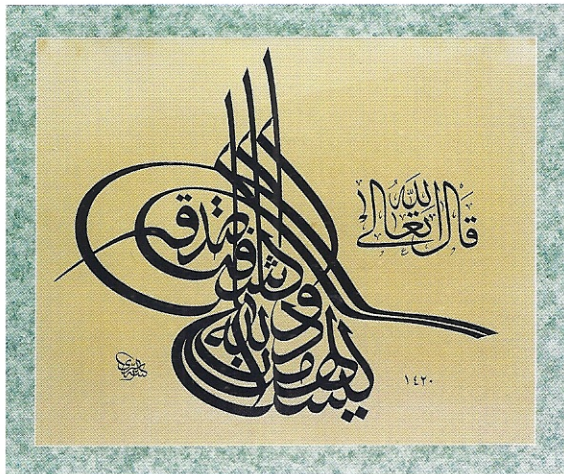 قال الله تعالى
ليس لها من دون الله كاشفة
١٤٢٠